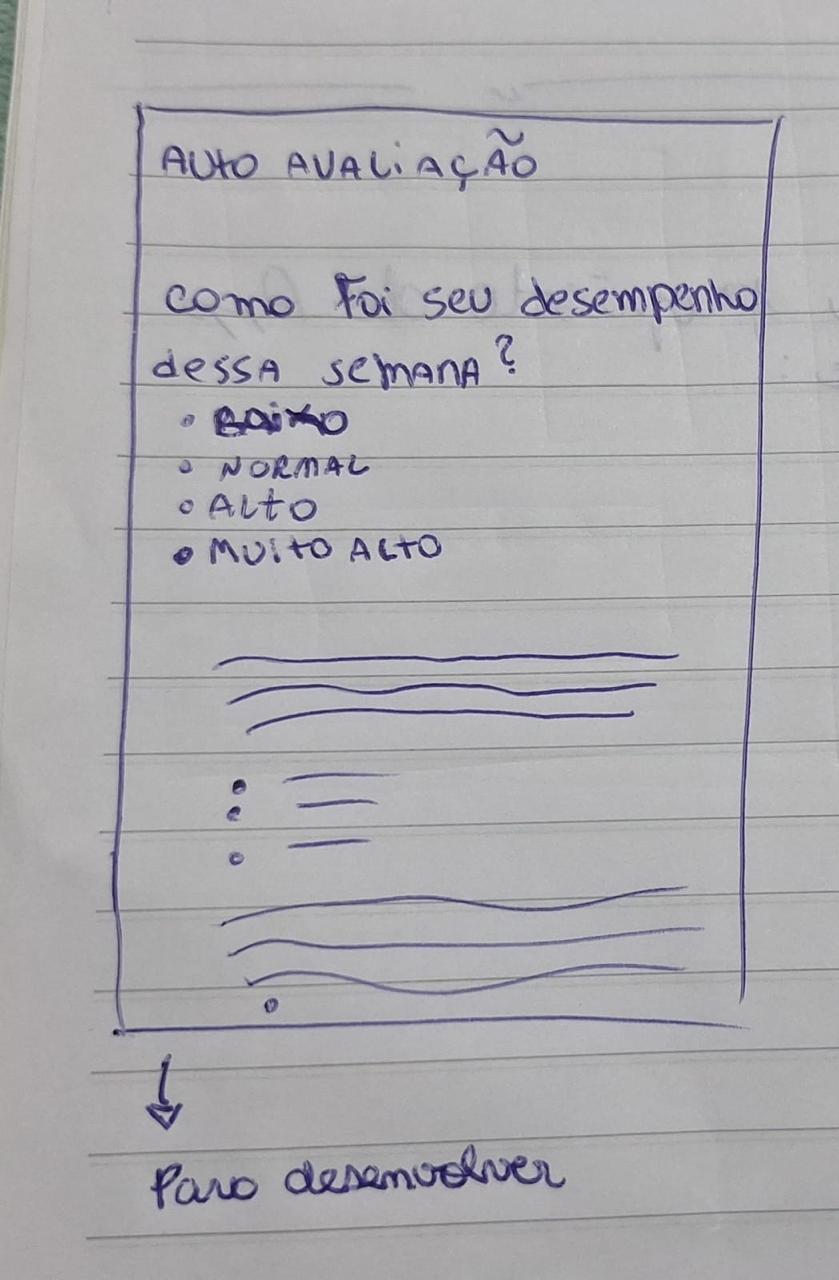 AUTO AVALIAÇÃO
como Foi seu desempenho
dessa semana?
BAIXO
NORMAL
ALTO
MUITO ALTO
Para desenvolver